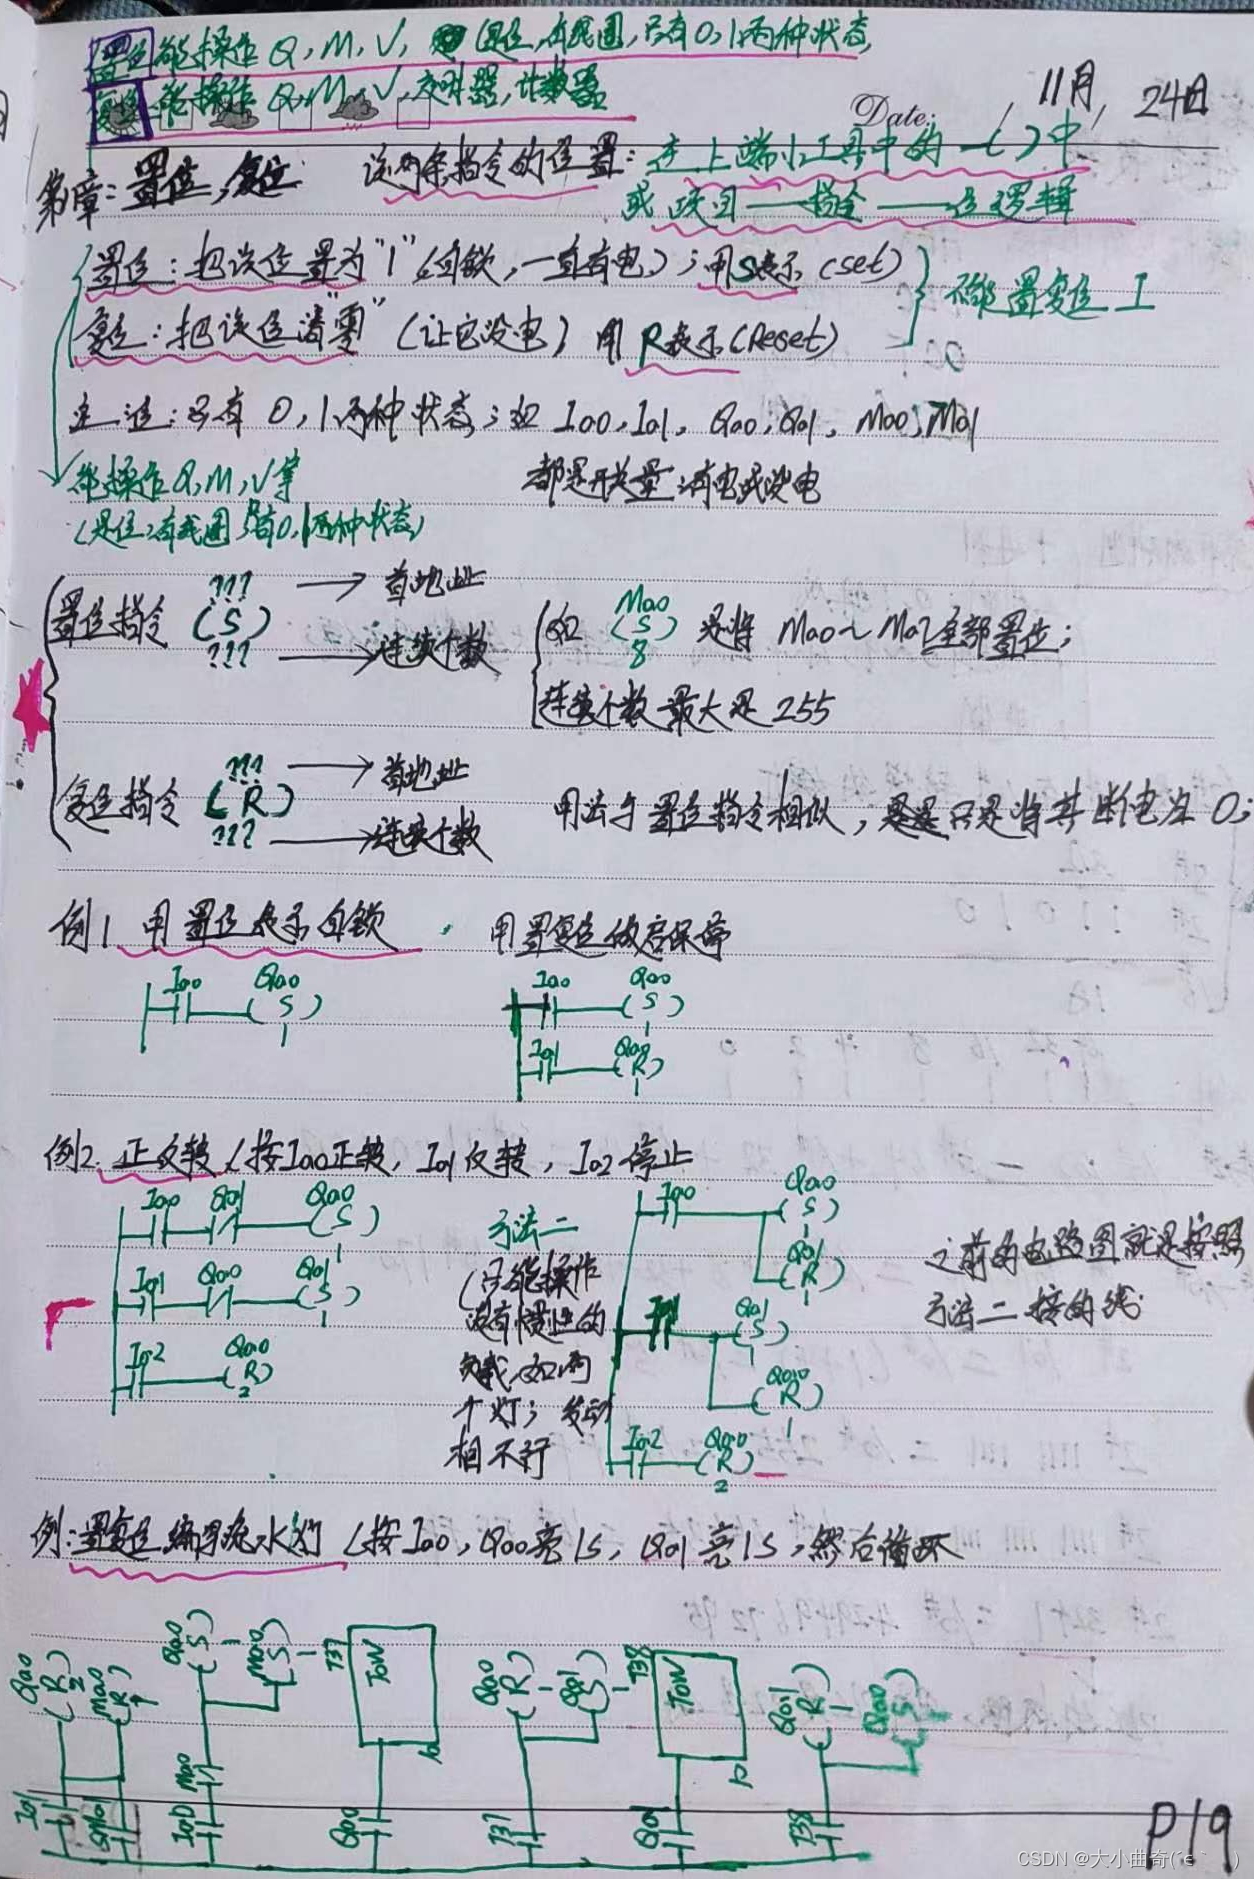 置位能操作 Q, M, V, 是位,有线圈,只有0,1两种状态
复位能操作 Q, M, V,定时器,计数器
Date: 11月, 24日
置位,复位 这两条指令的位置:在上端小工具中的 -( )中
或项目——指令——位逻辑
置位:把该位置为"1"(自锁,一直有电);用S表示(set)
复位:把该位清"零"(让它没电) 用R表示(Reset)
不能置复位 I
位:只有0,1两种状态;如 I0.0, I0.1, Q0.0, Q0.1, M0.0, M0.1
能操作Q,M,V等
都是开关量:有电或没电
(是位,有线圈,只有0,1两种状态)
置位指令 ??? (S) ??? → 首地址 → 连续个数
如 M0.0 (S) 8 是将 M0.0~M0.7全部置位;
连续个数最大是255
复位指令 ??? (R) ??? → 首地址 → 连续个数
用法与置位指令相似,只是将其断电为0;
例1 用置位表示自锁
用置复位做启保停
I0.0 Q0.0 (S) 1
I0.0 Q0.0 (S) 1
I0.1 Q0.0 (R) 1
例2. 正反转(按I0.0正转, I0.1反转, I0.2停止
I0.0 Q0.1 Q0.0 (S) 1
I0.1 Q0.0 Q0.1 (S) 1
I0.2 Q0.0 (R) 2
方法二
(只能操作
没有惯性的
负载,如两
个灯;发动
相不行
I0.0 Q0.0 (S) 1
Q0.1 (R) 1
I0.1 Q0.1 (S) 1
Q0.0 (R) 1
I0.2 Q0.0 (R) 2
之前的电路图就是按照
方法二接的线
例:置复位编写流水灯(按I0.0, Q0.0亮1S, Q0.1亮1S,然后循环
I0.1 Q0.0 (R) 2
M0.0 (R) 1
I0.0 M0.0 Q0.0 (S) 1
M0.0 (S) 1
Q0.0 T37 TON
T37 Q0.0 (R) 1
Q0.1 (S) 1
Q0.1 T38 TON
T38 Q0.1 (R) 1
Q0.0 (S)
P19
CSDN @大小曲奇